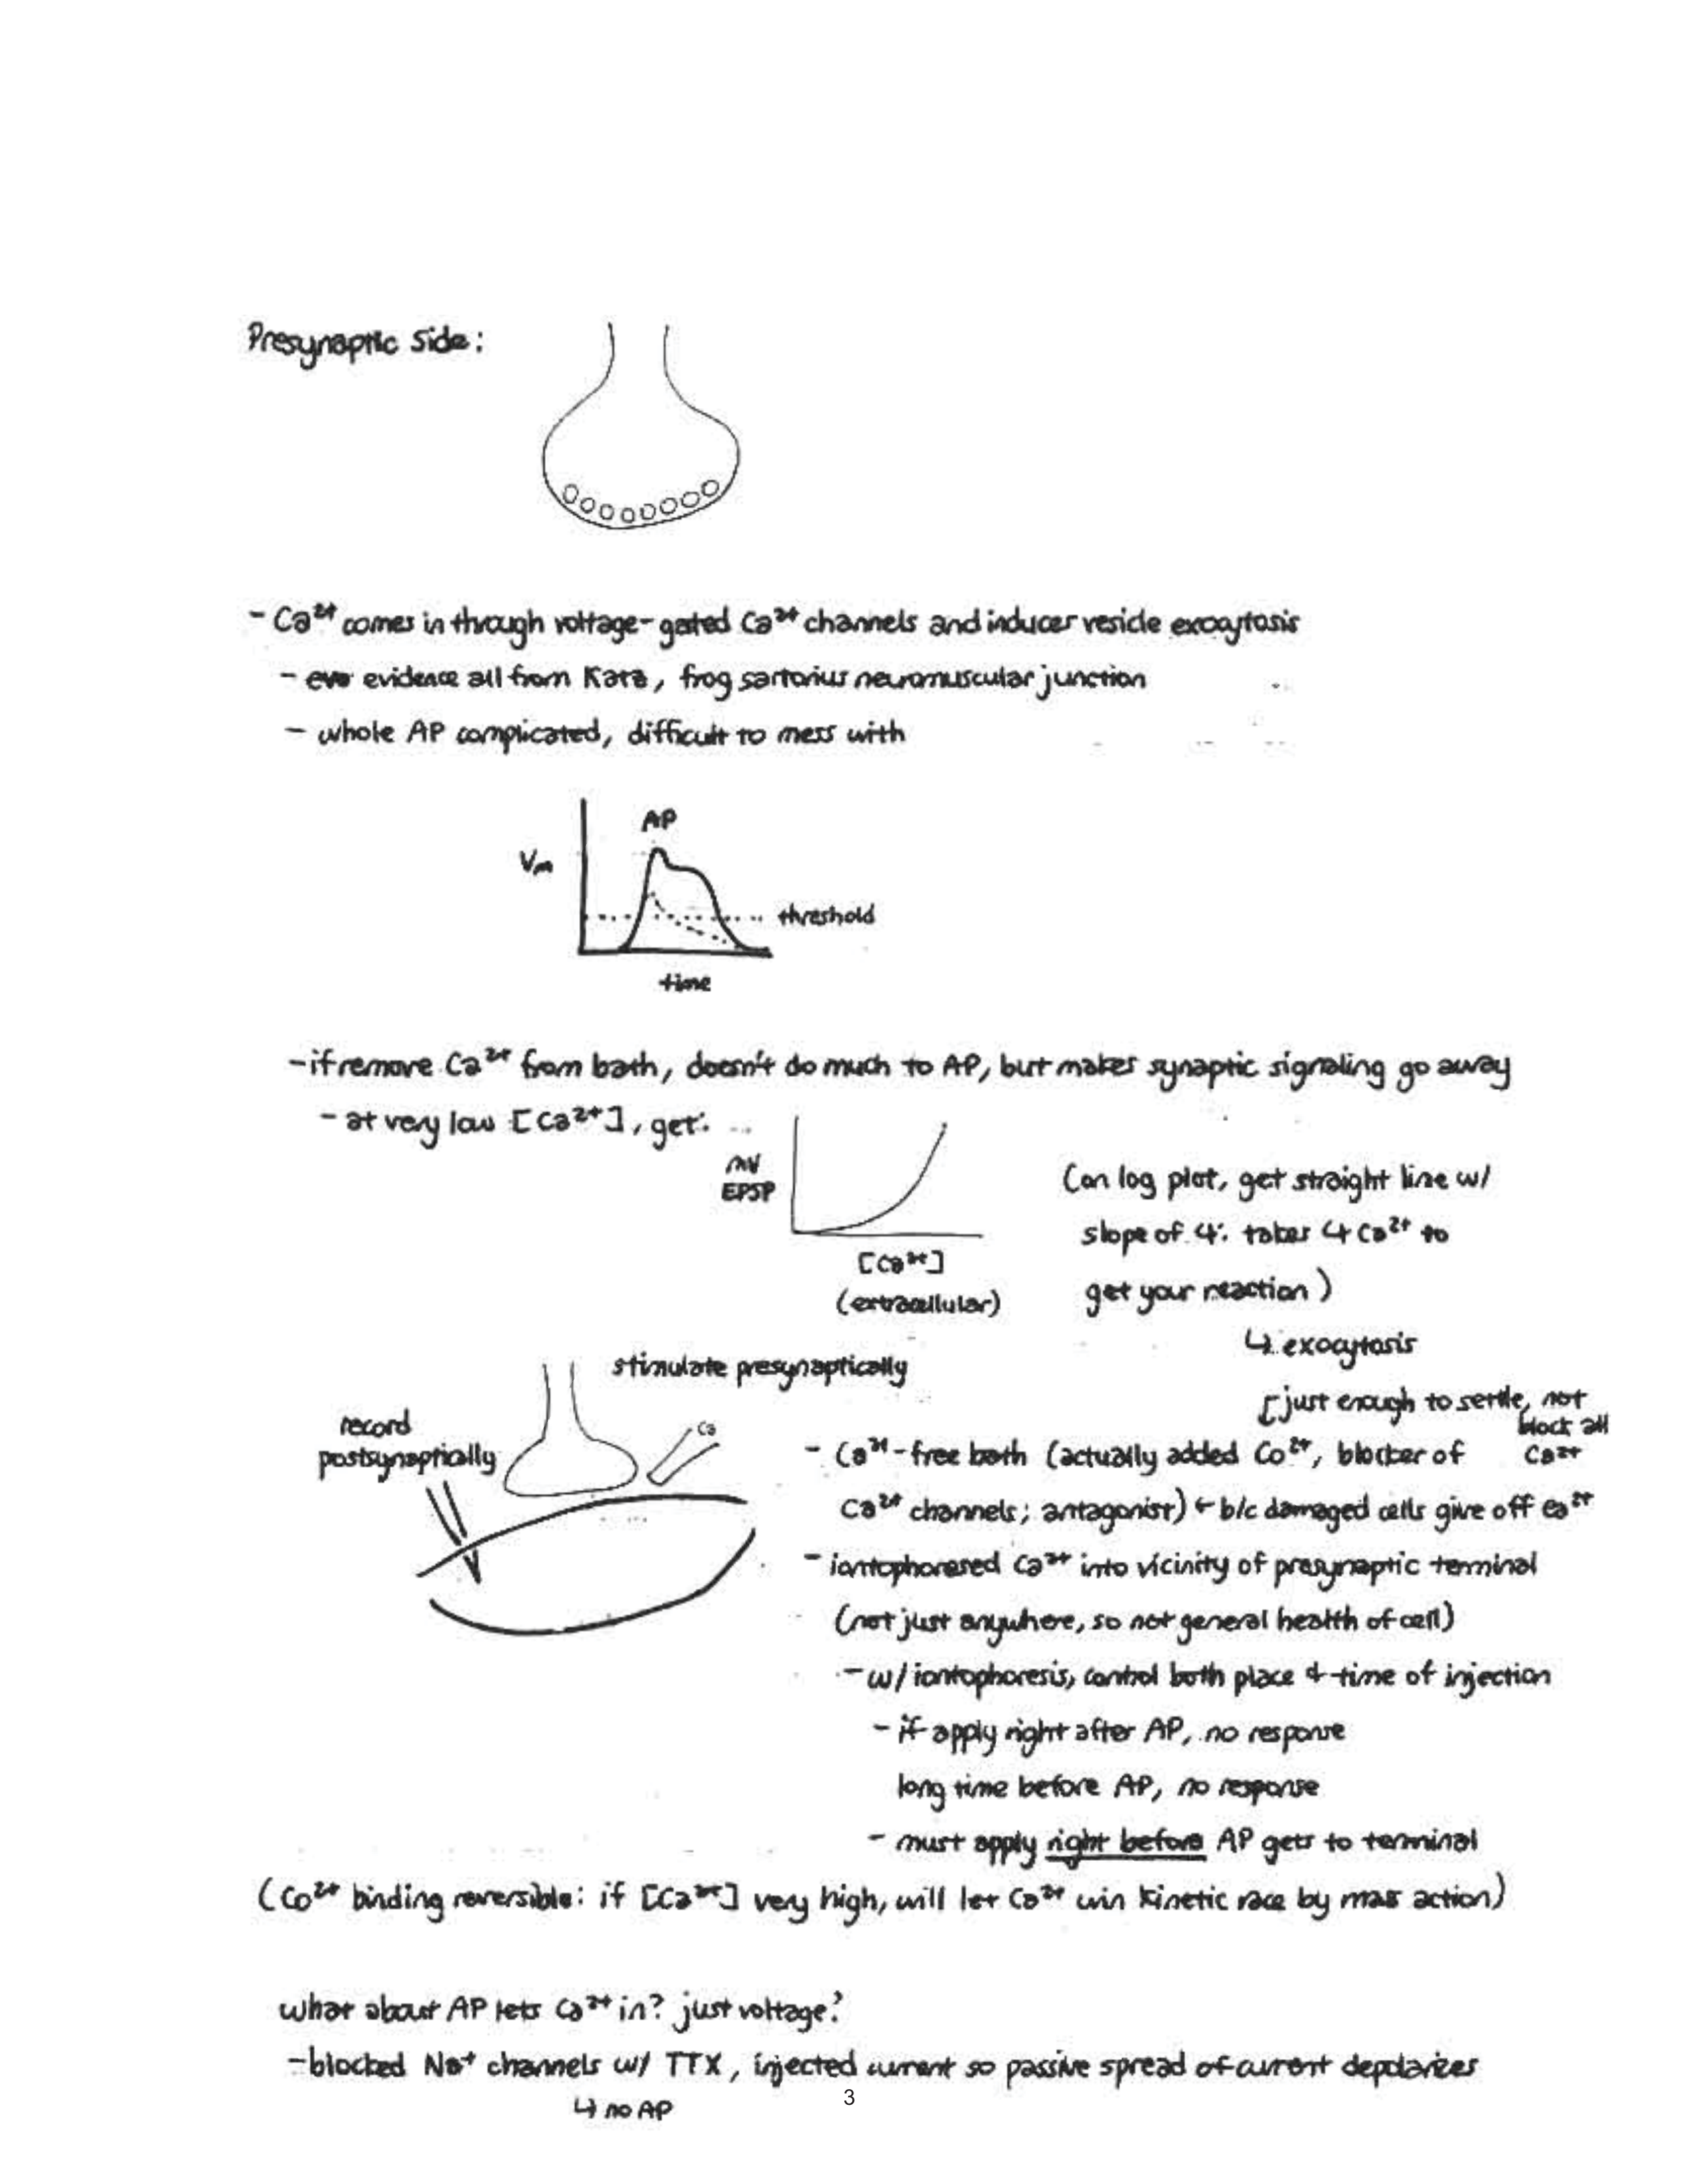 Presynaptic side:
- Ca²⁺ comes in through voltage-gated Ca²⁺ channels and induces vesicle exocytosis
- evidence all from Katz, frog sartorius neuromuscular junction
- whole AP complicated, difficult to mess with
AP
Vm
threshold
time
- if remove Ca²⁺ from bath, doesn't do much to AP, but makes synaptic signaling go away
- at very low [Ca²⁺], get:
mV
EPSP
[Ca²⁺]
(extracellular)
(on log plot, get straight line w/
slope of 4∴ takes 4 Ca²⁺ to
get your reaction)
↳ exocytosis
stimulate presynaptically
record
postsynaptically
Ca
just enough to settle, not
block all
Ca²⁺
- Ca²⁺-free bath (actually added Co²⁺, blocker of
Ca²⁺ channels; antagonist) ← b/c damaged cells give off Ca²⁺
- iontophoresed Ca²⁺ into vicinity of presynaptic terminal
(not just anywhere, so not general health of cell)
- w/ iontophoresis, control both place & time of injection
- if apply right after AP, no response
long time before AP, no response
- must apply right before AP gets to terminal
(Co²⁺ binding reversible: if [Ca²⁺] very high, will let Ca²⁺ win kinetic race by mass action)
what about AP lets Ca²⁺ in? just voltage?
- blocked Na⁺ channels w/ TTX, injected current so passive spread of current depolarizes
↳ no AP
3